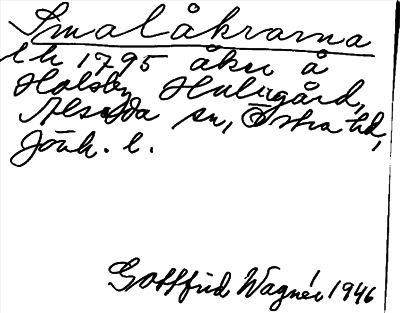 Smalåkrarna
lh 1795 åker å
Holsby Hulugård,
Alseda sn, Östra hd,
Jönk. l.
Gottfrid Wagnér 1946